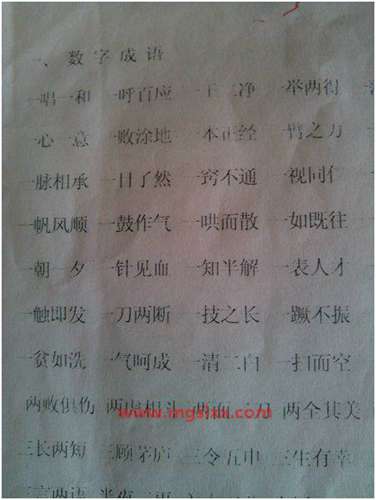 一、数字成语
一唱一和 一呼百应 一干二净 一举两得
一心一意 一败涂地 一本正经 一臂之力
一脉相承 一目了然 一窍不通 一视同仁
一帆风顺 一鼓作气 一哄而散 一如既往
一朝一夕 一针见血 一知半解 一表人才
一触即发 一刀两断 一技之长 一蹶不振
一贫如洗 一气呵成 一清二白 一扫而空
两败俱伤 两虎相斗 两面三刀 两全其美
三长两短 三顾茅庐 三令五申 三生有幸
三言两语 半夜三更